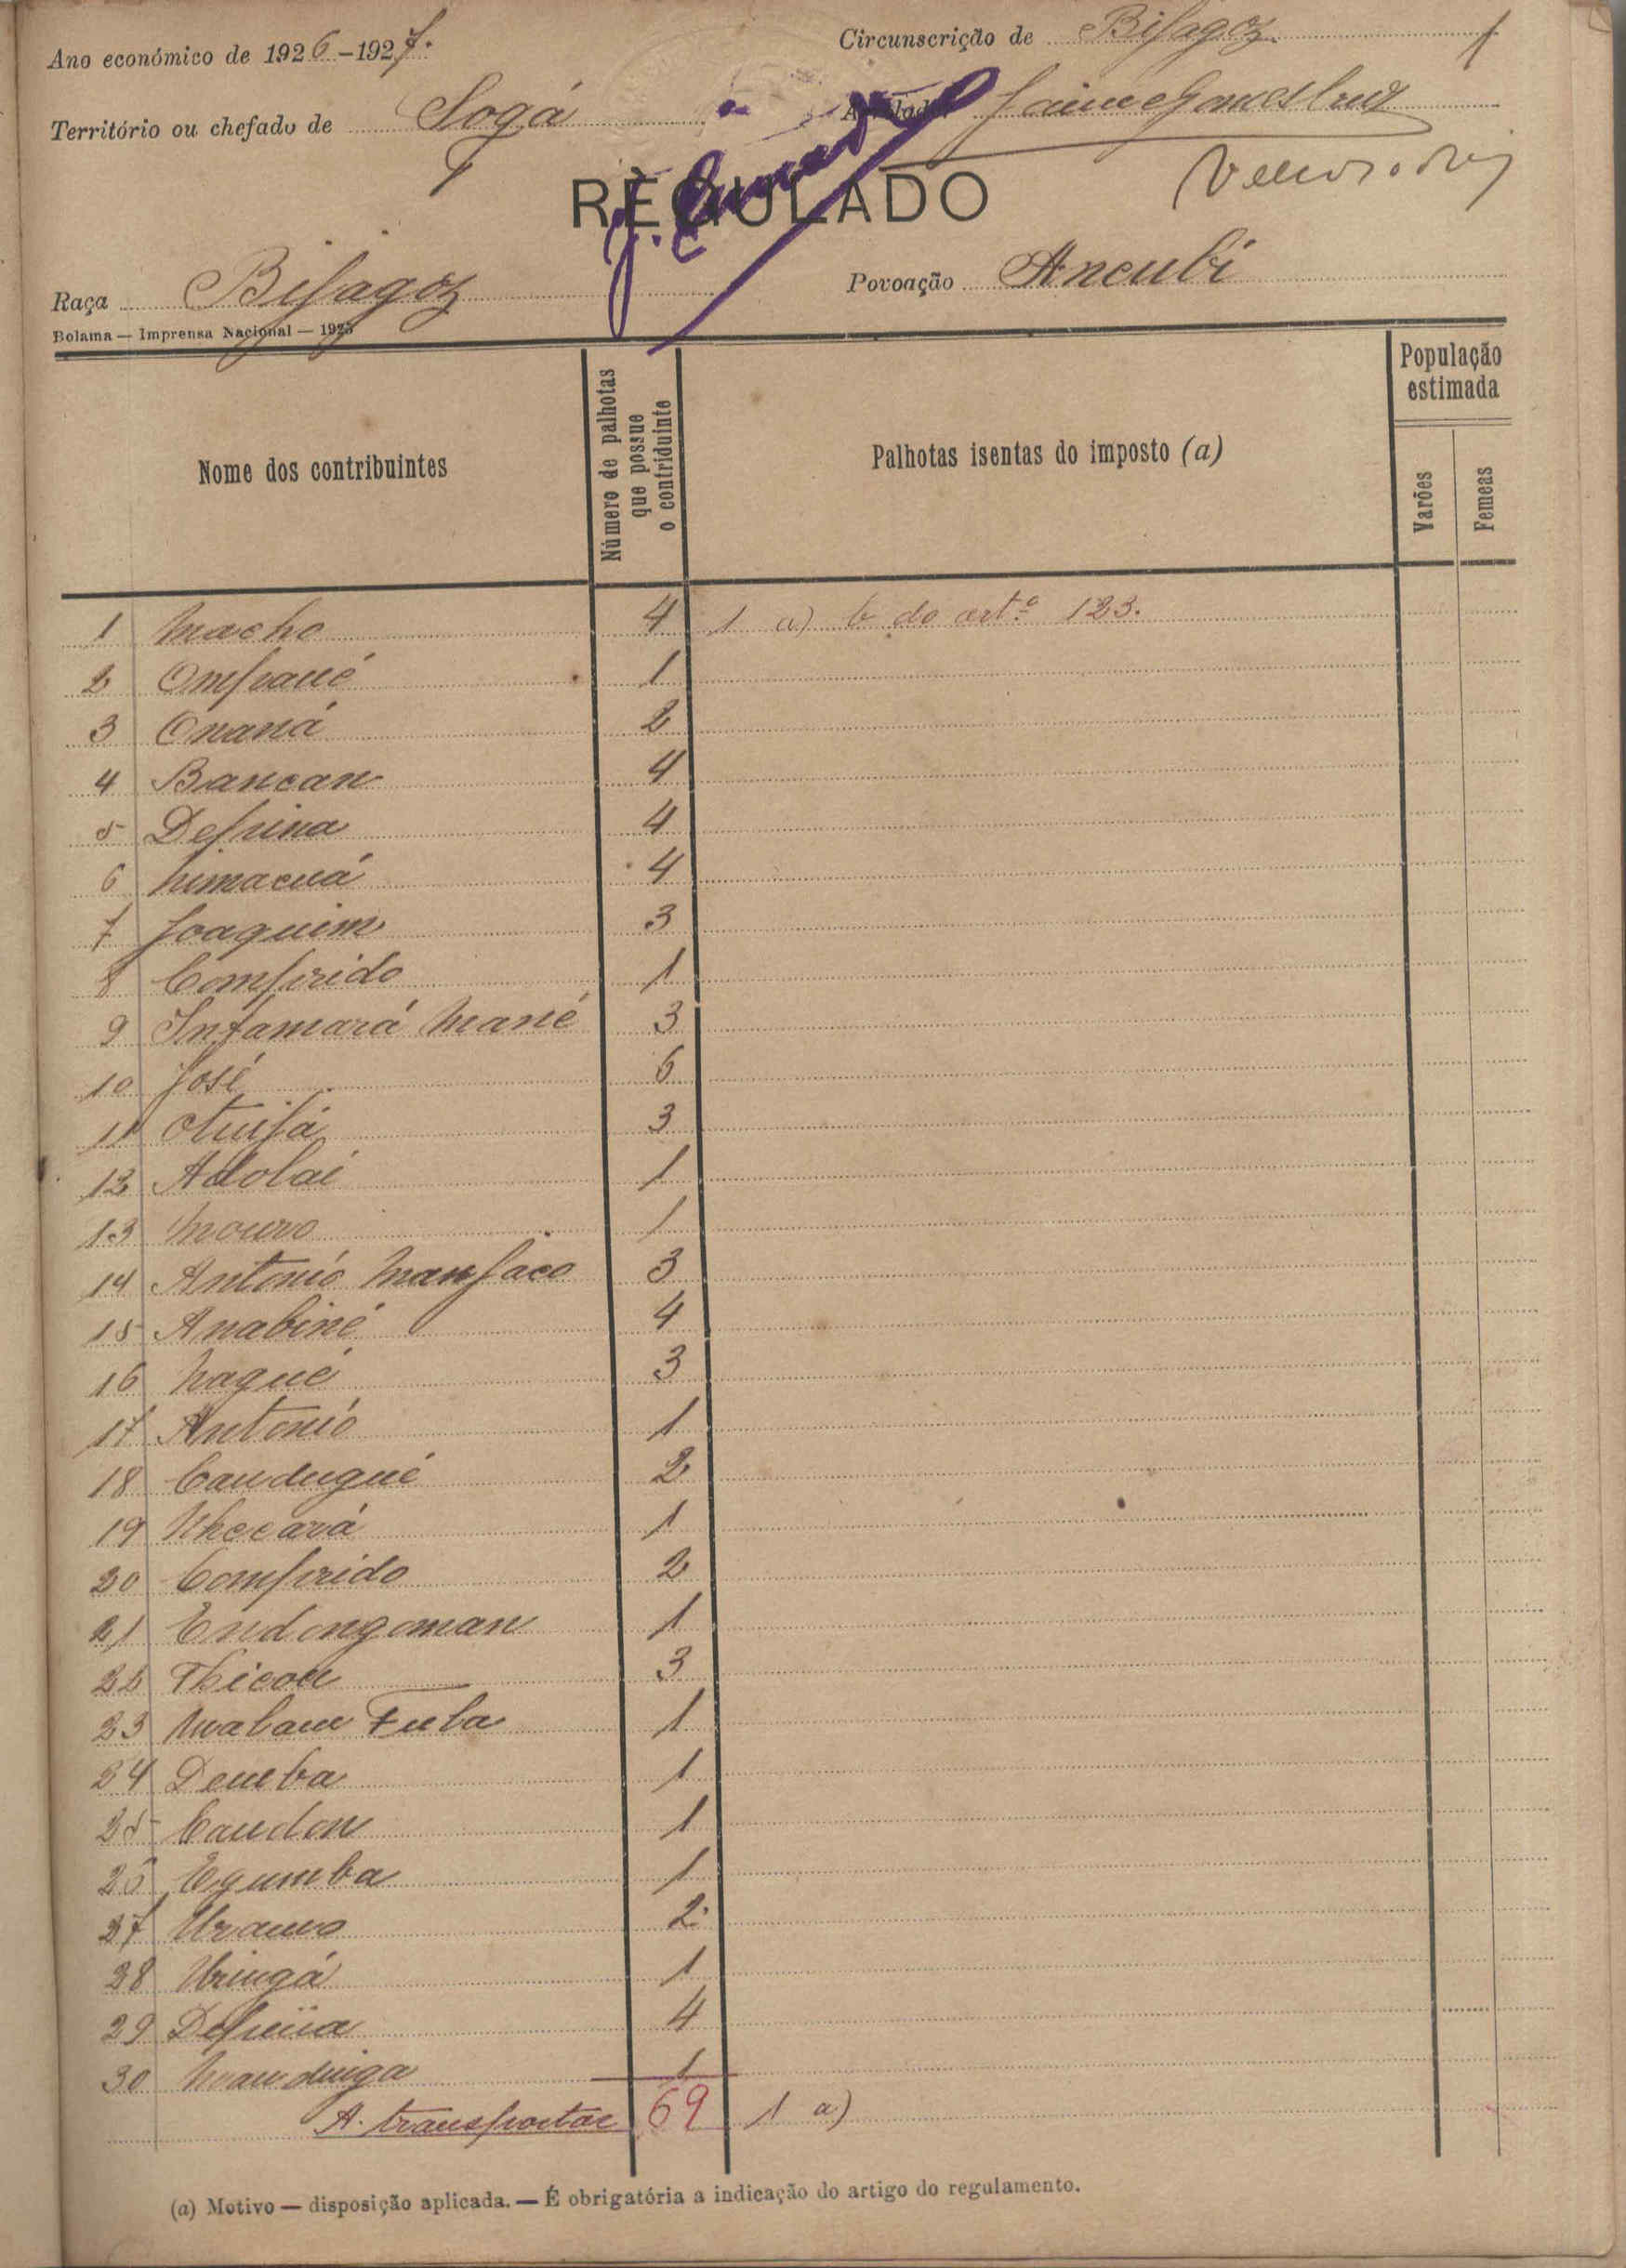 Ano económico de 1926-1927.
Circunscrição de Bijagoz.
1
Território ou chefado de Sogá
Jaime Gomes
RÈGULADO
Raça Bijagoz
Povoação Ancubi
Bolama — Imprensa Nacional — 1925
Nome dos contribuintes
Número de palhotas que possue o contriduinte
Palhotas isentas do imposto (a)
População estimada
Varões
Femeas
1 Macho 4 1 a) b do artº 123.
2 1
3 Onaná 2
4 Bancan 4
5 Defuna 4
6 4
7 Joaquim 3
8 Comprido 1
9 Intamará Mané 3
10 José 6
11 3
12 Adolai 1
13 Mouro 1
14 António Manjaco 3
15 Anabiné 4
16 Naqué 3
17 António 1
18 Canduqué 2
19 Nhocará 1
20 Comprido 2
21 Endongoman 1
22 3
23 Malam Fula 1
24 Demba 1
25 Caudon 1
26 Egumba 1
27 2
28 1
29 4
30 Mandinga 1
A transportar 69 1 a)
(a) Motivo — disposição aplicada. — É obrigatória a indicação do artigo do regulamento.